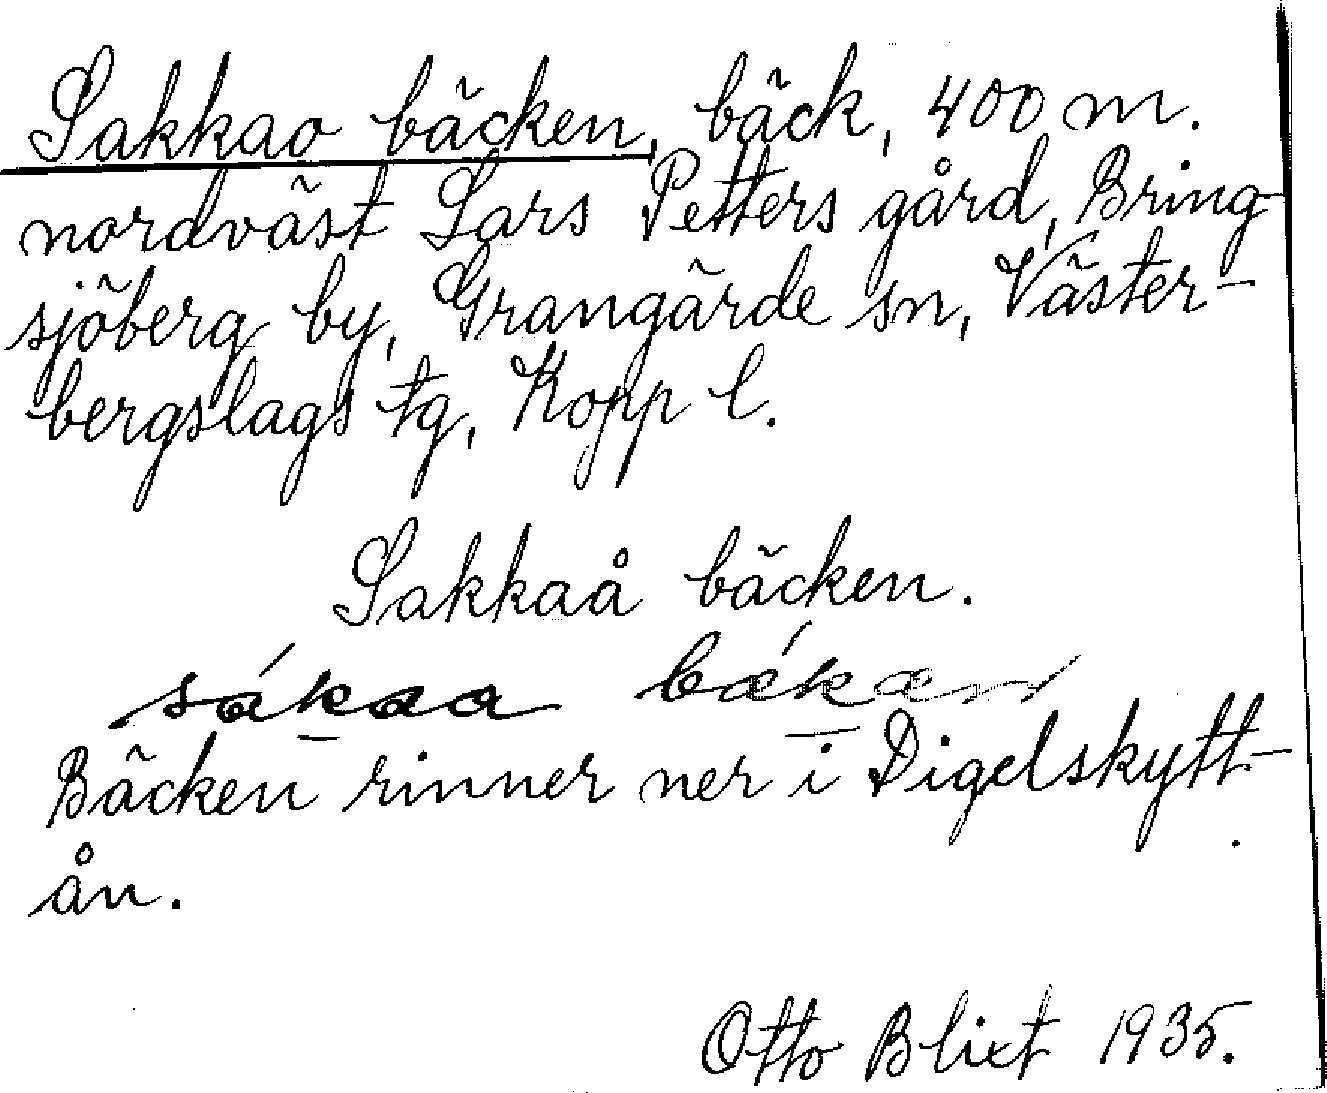 Sakkao bäcken, bäck, 400 m.
nordväst Lars Petters gård, Bring-
sjöberg by, Grangärde sn, Väster-
bergslags tg, Kopp l.
Sakkaå bäcken.
sákaa bækæn
Bäcken rinner ner i Digelskytt-
ån.
Otto Blixt 1935.